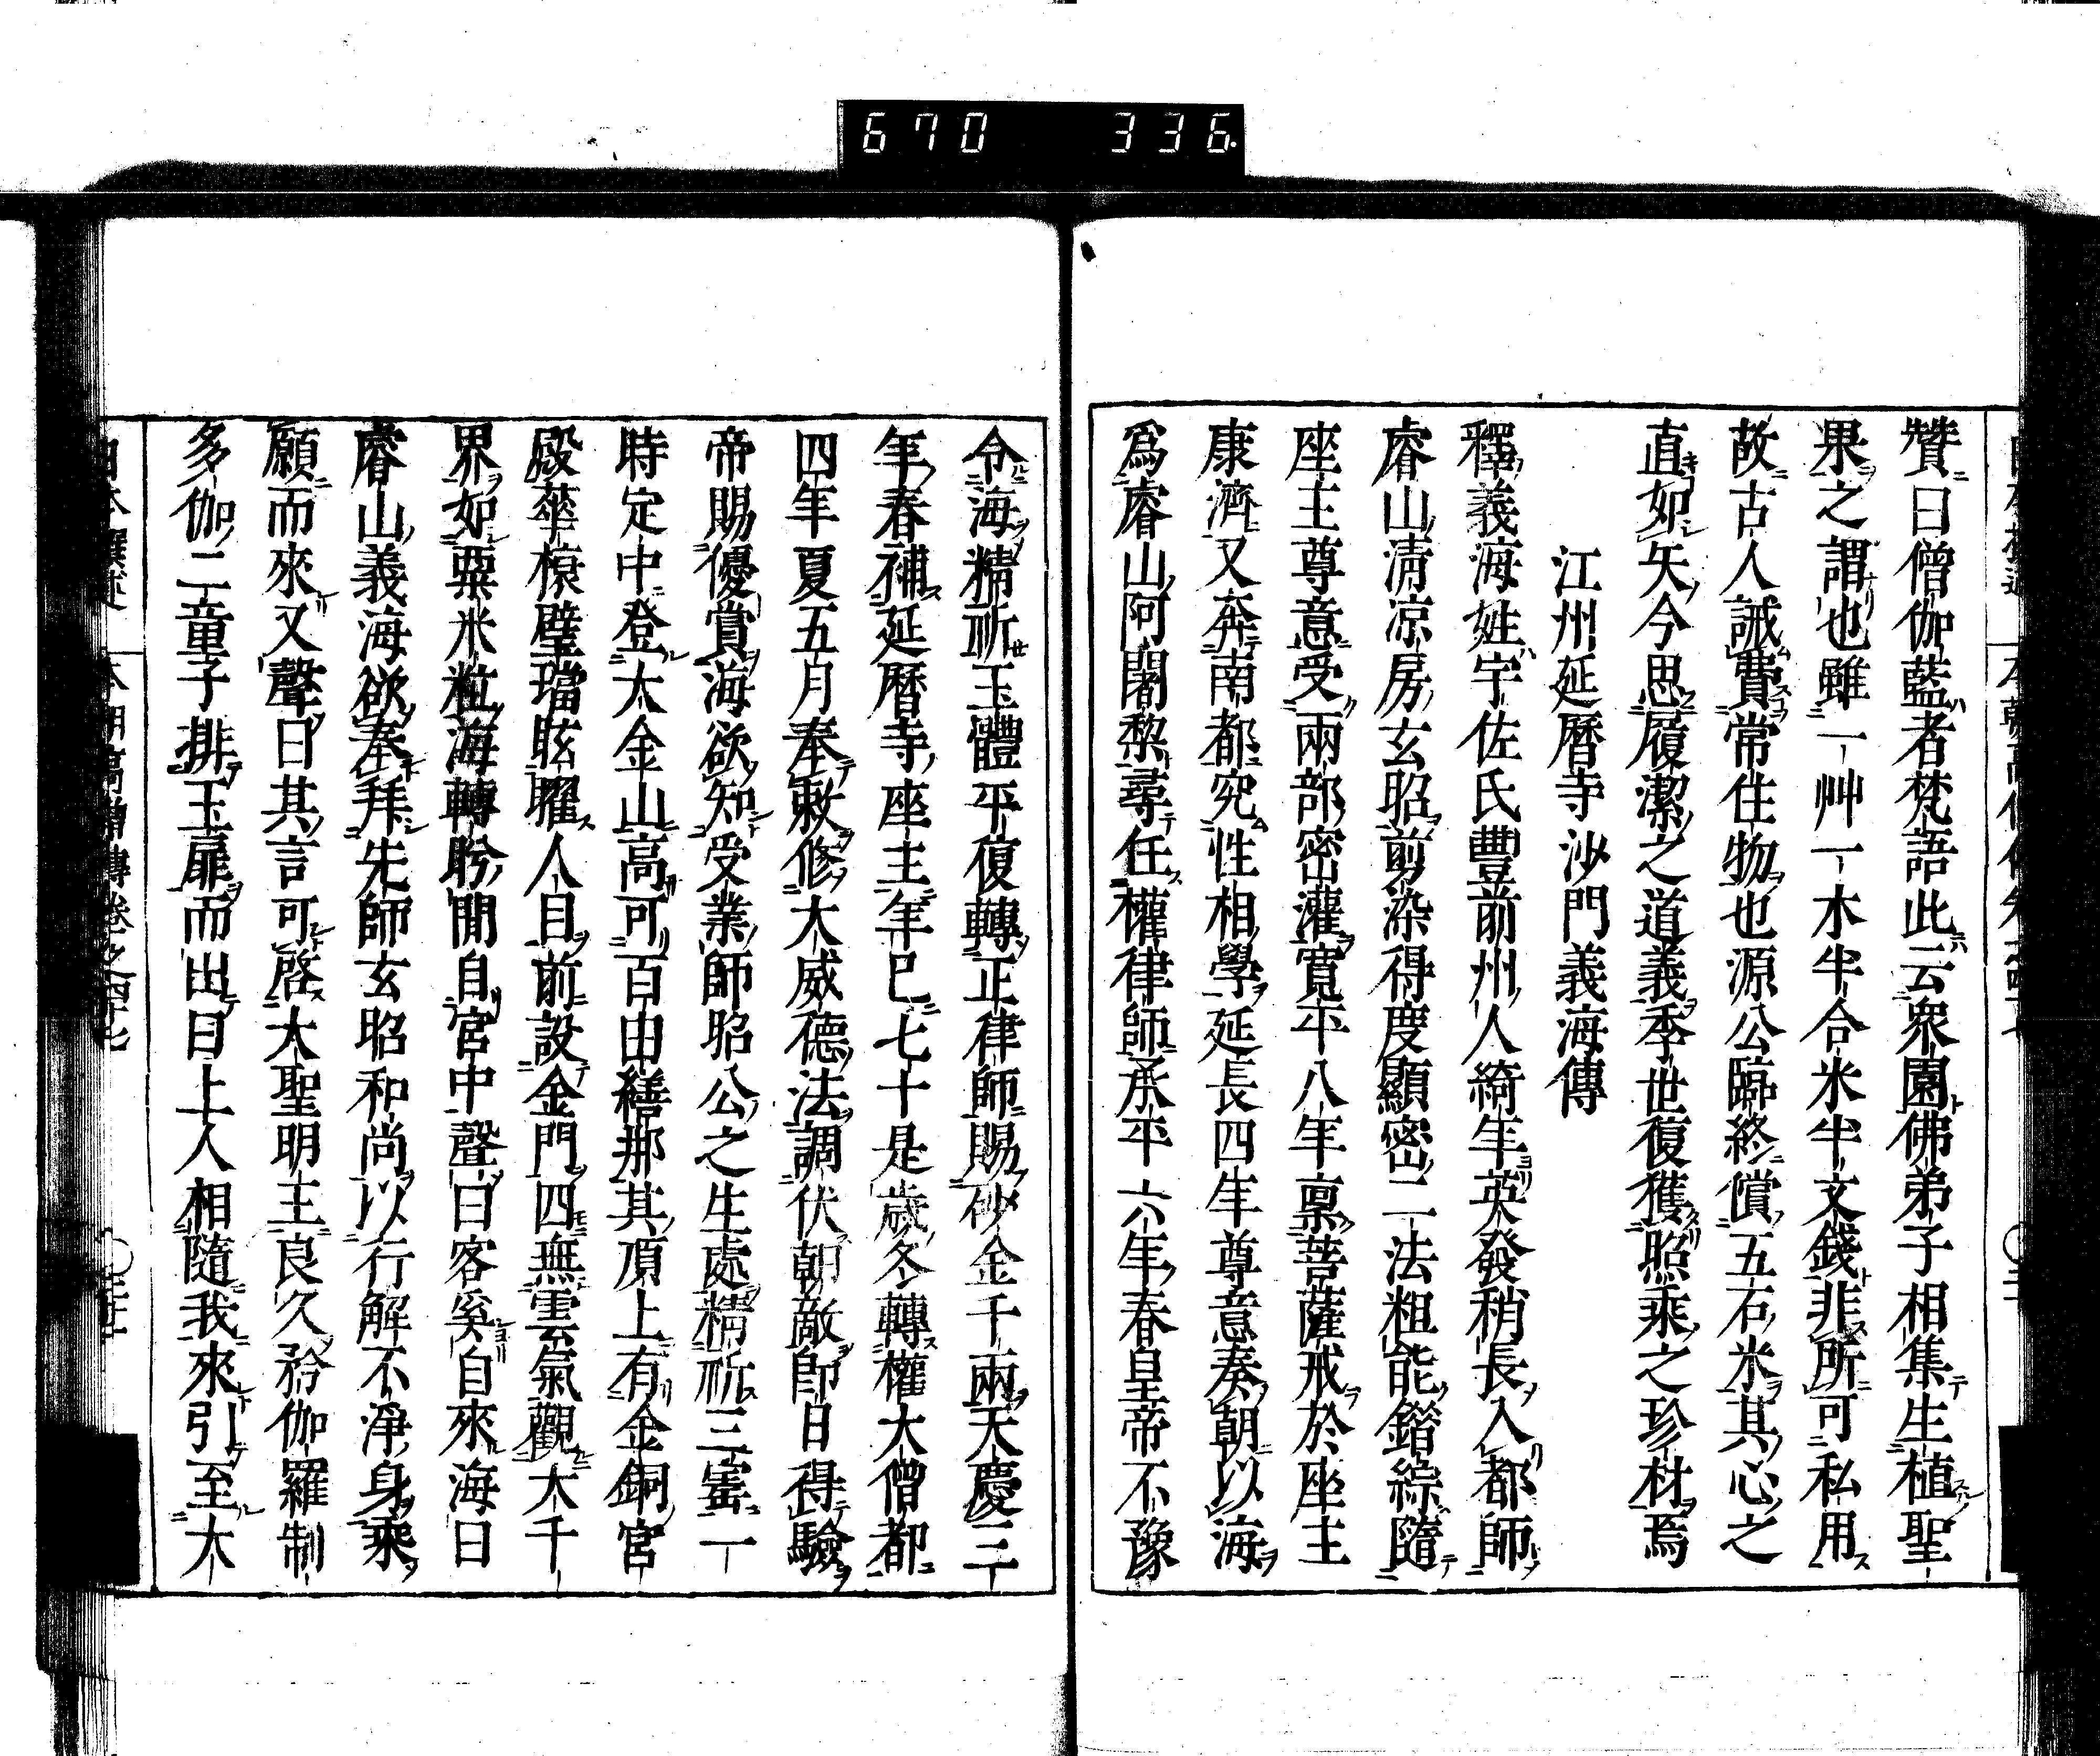 670 336
贊曰僧伽藍者梵語此云衆園佛弟子相集生植聖
果之謂也雖一艸一木半合米半文錢非所可私用
故古人誡費常住物也源公臨終償五石米其心之
直如矢今思履潔之道義季世復獲照乘之珍材焉
江州延曆寺沙門義海傳
釋義海姓宇佐氏豐前州人綺年英發稍長入都師
睿山清凉房玄昭剪染得度顯密二法粗能錯綜隨
座主尊意受兩部密灌寬平八年稟菩薩戒於座主
康濟又奔南都究性相學延長四年尊意奏朝以海
爲睿山阿闍黎尋任權律師承平六年春皇帝不豫
令海精祈玉體平復轉正律師賜砂金千兩天慶三
年春補延曆寺座主年已七十是歲冬轉權大僧都
四年夏五月奉敕修大威德法調伏朝敵卽日得驗
帝賜優賞海欲知受業師昭公之生處精祈三霱一
時定中登大金山高可百由繕那其頂上有金銅宮
殿華榱璧璫眩耀人目前設金門四無雲氣觀大千
界如粟米粒海轉盻閒自宮中聲曰客奚自來海曰
睿山義海欲奉拜先師玄昭和尚以行解不淨身乘
願而來又聲曰其言可啓大聖明王良久矜伽羅制
多伽二童子排玉扉而出曰上人相隨我來引至大
日本撰述 本朝高僧傳卷之四十七